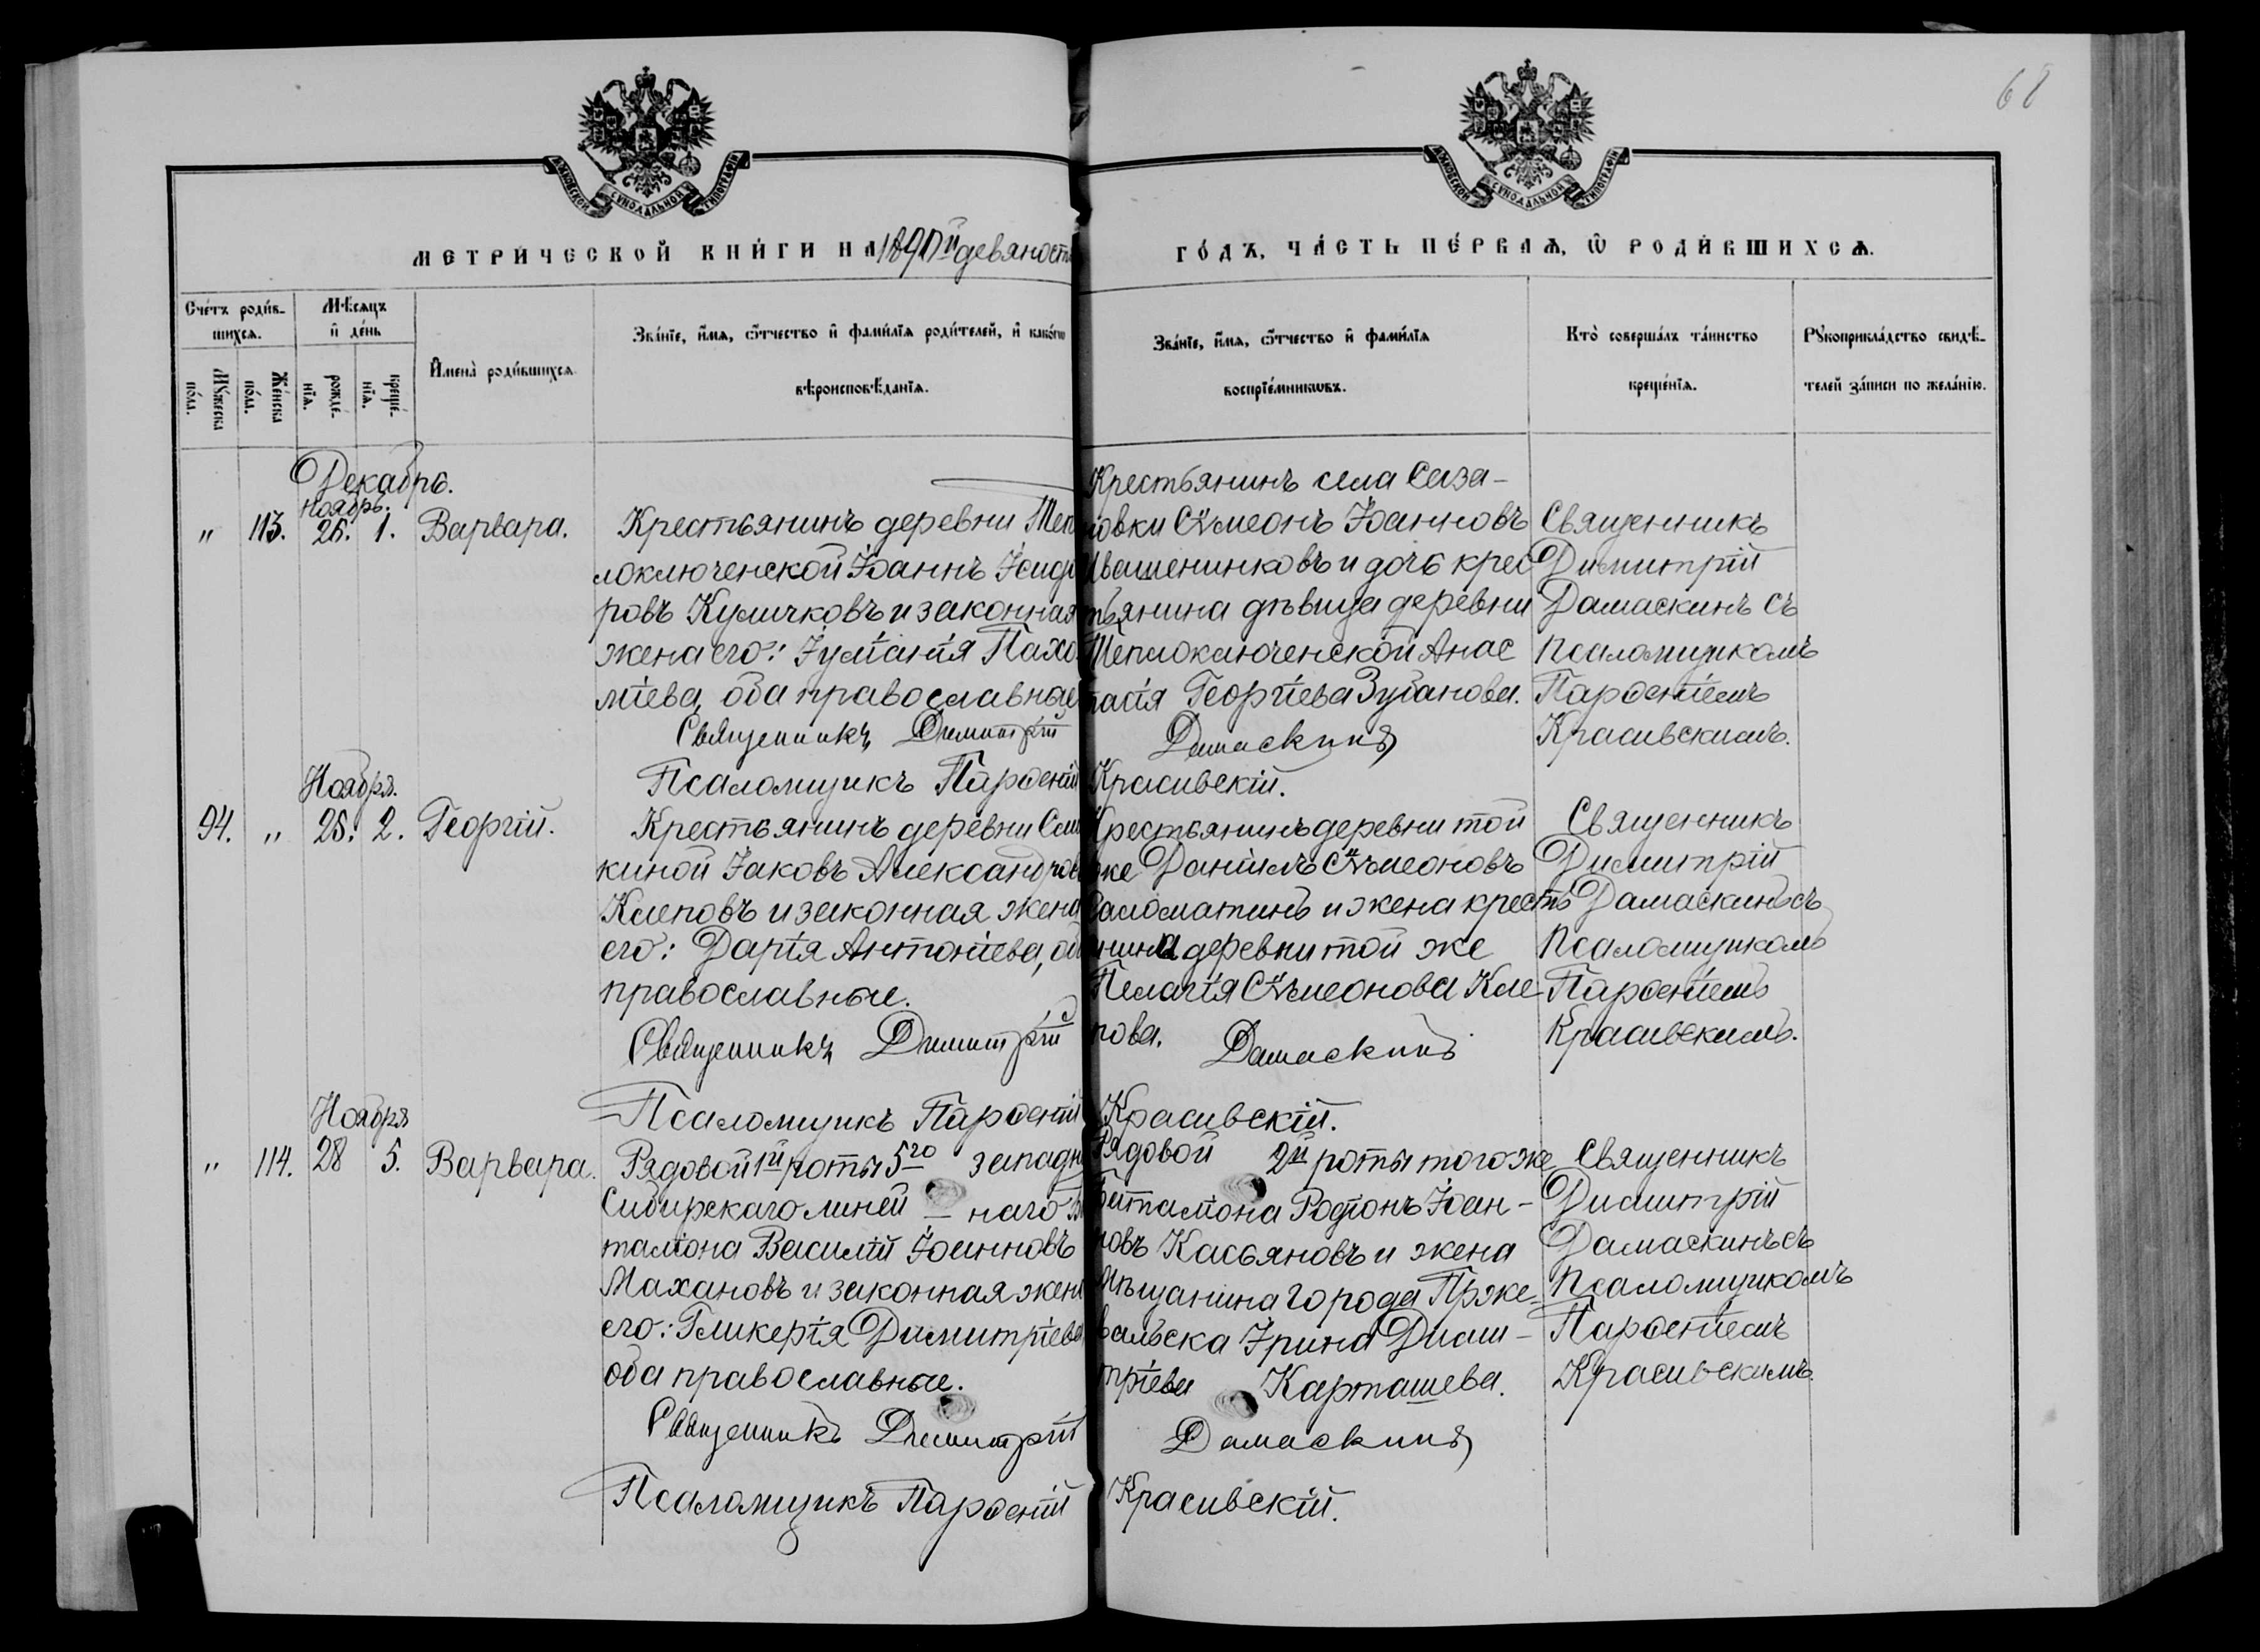 68
МОСКОВСКОЙ СѴНОДАЛЬНОЙ ТИПОГРАФІИ
МОСКОВСКОЙ СѴНОДАЛЬНОЙ ТИПОГРАФІИ
МЕТРИ́ЧЕСКОЙ КНИ́ГИ НА 1890й девяносты
ГО́ДЪ, ЧА́СТЬ ПЕ́РВАѦ, Ѡ҆ РОДИ́ВШИХСѦ.
Сче́тъ роди́в-
шихсѧ.
Мꙋ́жеска
по́ла.
Же́нска
по́ла.
Мѣ́сѧцъ
и҆ де́нь
рожде́-
нїѧ.
креще́-
нїѧ.
И҆мена̀ роди́вшихсѧ.
Зва́нїе, и҆́мѧ, ѻ҆́тчество и҆ фами́лїѧ роди́телей, и҆ како́гѡ
вѣроисповѣ́данїѧ.
Зва́нїе, и҆́мѧ, ѻ҆́тчество и҆ фами́лїѧ
воспрїе́мникѡвъ.
Кто̀ соверша́лъ та́инство
креще́нїѧ.
Рꙋкоприкла́дство свидѣ́-
телей за́писи по жела́нїю.
Декабрь.
Ноябрь.
" 113. 26. 1. Варвара.
Крестьянинъ деревни Теп
лоключенской Іоаннъ Исидо
ровъ Куличковъ и законная
жена его: Іуліанія Пахо
міева, оба православные
Священникъ Димитрій
Псаломщикъ Парѳеній
Крестьянинъ села Саза-
новки Сѵмеонъ Іоанновъ
Ивашенниковъ и дочь крес
тьянина дѣвица деревни
Теплоключенской Анас
тасія Георгіева Зубанова.
Дамаскинъ
Красивскій.
Священникъ
Димитрій
Дамаскинъ съ
псаломщикомъ
Парѳеніемъ
Красивскимъ.
Ноября.
94. " 25. 2. Георгій.
Крестьянинъ деревни Сли
киной Іаковъ Александров
Клеповъ и законная жена
его: Дарія Антоніева, об
православные.
Священникъ Димитрій
Псаломщикъ Парѳеній
Крестьянинъ деревни той
же Даніилъ Сѵмеоновъ
Саломатинъ и жена кресть
нина деревни той же
Пелагія Сѵмеонова Кле-
пова. Дамаскинъ
Красивскій.
Священникъ
Димитрій
Дамаскинъ съ
псаломщикомъ
Парѳеніемъ
Красивскимъ.
Ноября
" 114. 28 5. Варвара.
Рядовой 1й роты 5го западн
Сибирскаго линей - наго Ба
таліона Василій Іоанновъ
Махановъ и законная жена
его: Гликерія Димитріева
оба православные.
Священникъ Димитрій
Псаломщикъ Парѳеній
Рядовой 2й роты тогоже
Баталіона Родіонъ Іоан-
новъ Касьяновъ и жена
мѣщанина города Прже-
вальска Ирина Дими-
тріева Карташева.
Дамаскинъ
Красивскій.
Священникъ
Димитрій
Дамаскинъ съ
псаломщикомъ
Парѳеніемъ
Красивскимъ.